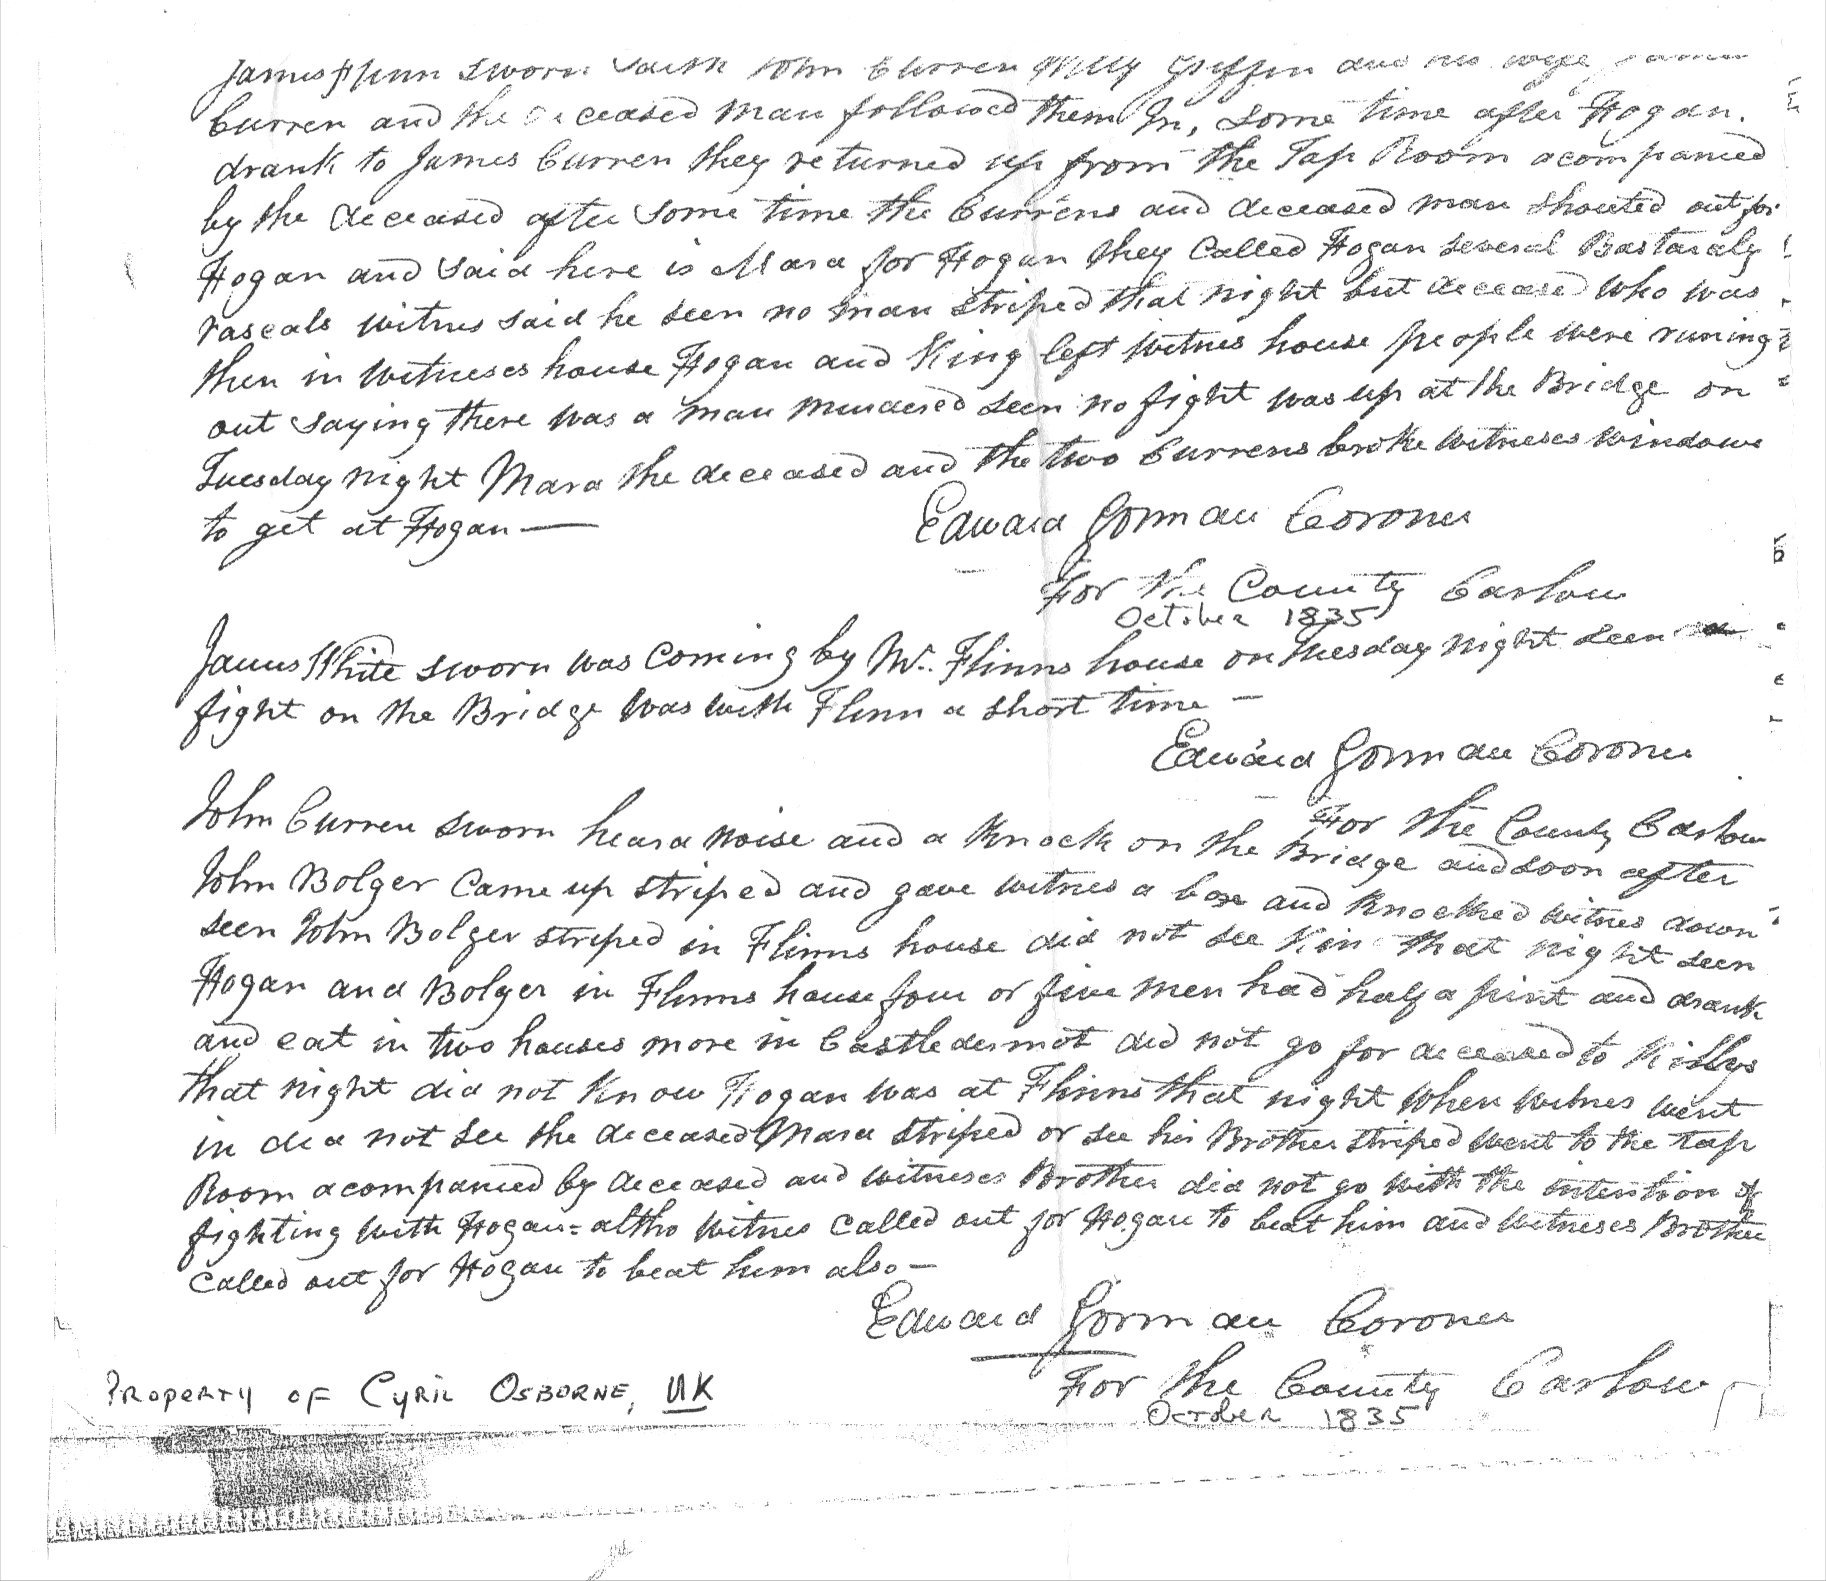 James Flinn sworn saith John Curren Milly Griffin and his wife James
Curren and the deceased man followed them In, some time after Hogan.
drank to James Curren they returned up from the Tap Room acompanied
by the deceased after some time the Currens and deceased man shouted out for
Hogan and said here is Mara for Hogan they called Hogan several Bastardly
rascals witnes said he seen no man striped that night but deceased who was
then in witneses house Hogan and King left witnes house people were runing
out saying there was a man murdered seen no fight was up at the Bridge on
Tuesday night Mara the deceased and the two Currens broke witneses windows
to get at Hogan —
Edward Gorman Coroner
For the County Carlow
October 1835
James White sworn was coming by Mr. Flinns house on Tuesday night seen
fight on the Bridge was with Flinn a short time —
Edward Gorman Coroner
For the County Carlow
John Curren sworn heard noise and a Knock on the Bridge and soon after
John Bolger came up striped and gave witnes a box and Knocked witnes down
seen John Bolger striped in Flinns house did not see Kin that night seen
Hogan and Bolger in Flinns house four or five men had half a pint and drank
and eat in two houses more in Castledermot did not go for deceased to Killys
that night did not Know Hogan was at Flinns that night when witnes went
in did not see the deceased Mara striped or see his Brother striped went to the tap
Room acompanied by deceased and witneses Brother did not go with the intention of
fighting with Hogan = altho witnes called out for Hogan to beat him and witneses Brother
called out for Hogan to beat him also —
Edward Gorman Coroner
For the County Carlow
October 1835
PROPERTY OF CYRIL OSBORNE, UK